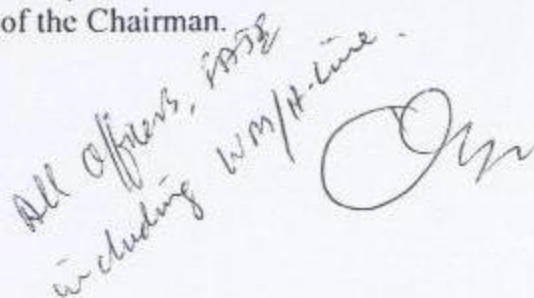 of the Chairman.
All Officers,
including WM/H-Line.